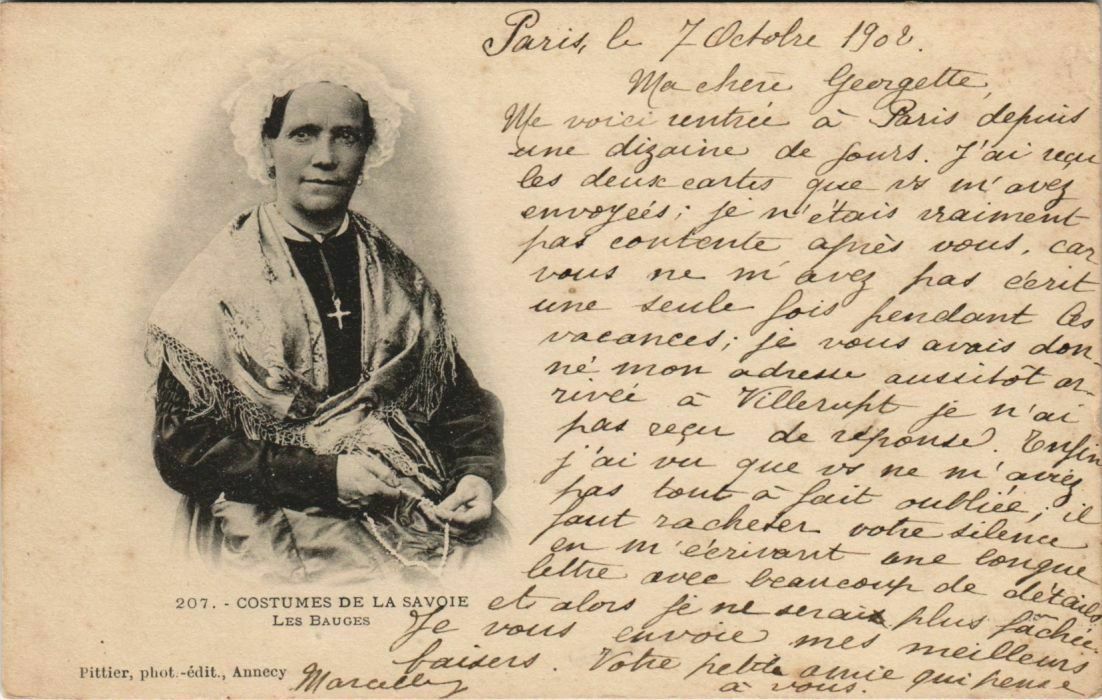 Paris, le 7 Octobre 1902.
Ma chère Georgette,
Me voici rentrée à Paris depuis
une dizaine de jours. J'ai reçu
les deux cartes que vs m'avez
envoyées; je n'étais vraiment
pas contente après vous, car
vous ne m'avez pas écrit
une seule fois pendant les
vacances; je vous avais don-
né mon adresse aussitôt ar-
rivée à Villerupt je n'ai
pas reçu de réponse. Enfin
j'ai vu que vs ne m'aviez
pas tout à fait oubliée; il
faut racheter votre silence
en m'écrivant une longue
lettre avec beaucoup de détails
et alors je ne serais plus fâchée
Je vous envoie mes meilleurs
baisers. Votre petite amie qui pense
à vous.
Marcelle
207. - COSTUMES DE LA SAVOIE
LES BAUGES
Pittier, phot.-édit., Annecy